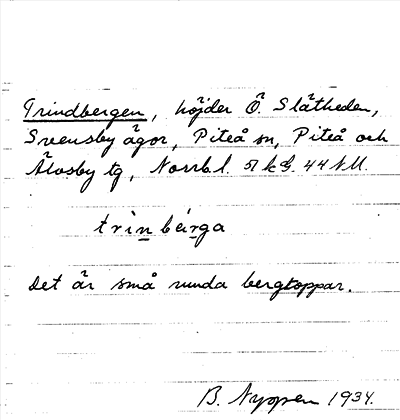 Trindbergen, höjder Ö. Slätheden,
Svensby ägor, Piteå sn, Piteå och
Älvsby tg, Norrb. l. 51 k S. 44 N.M.
trìn bæ̀rga
Det är små runda bergtoppar.
B. Nygren 1934.